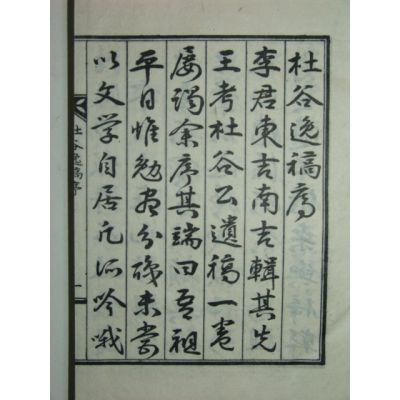 杜谷逸稿序
李君東吉南吉輯其先
王考杜谷公遺稿一卷
屢余序其端曰吾祖
平日惟勉盡分職未嘗
以文学自居凡所吟哦
杜谷逸稿序
一